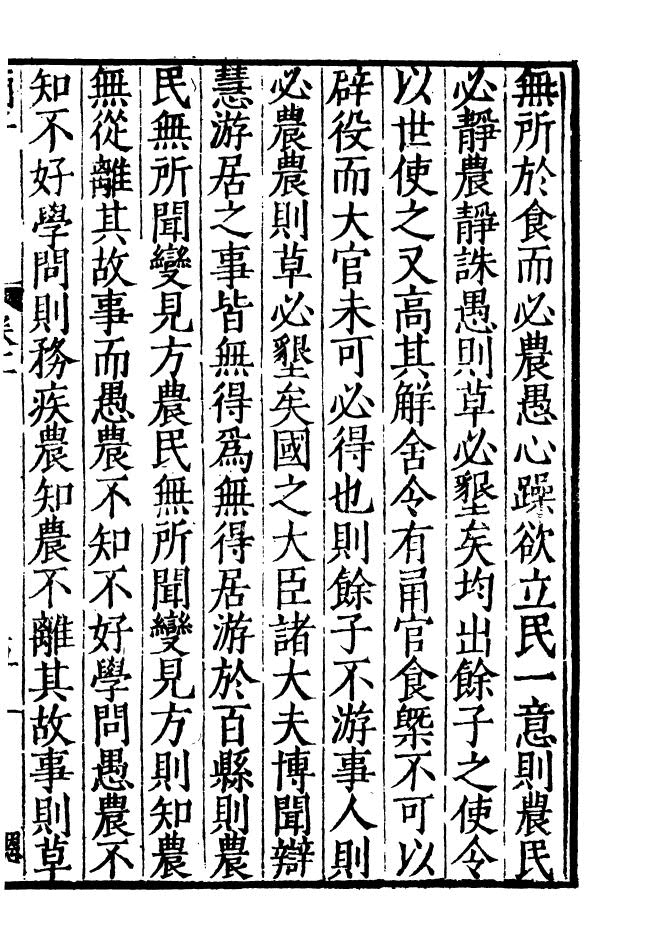 無所於食而必農愚心躁欲立民一意則農民
必靜農靜誅愚則草必墾矣均出餘子之使令
以世使之又高其解舍令有甬官食槩不可以
辟役而大官未可必得也則餘子不游事人則
必農農則草必墾矣國之大臣諸大夫博聞辯
慧游居之事皆無得爲無得居游於百縣則農
民無所聞變見方農民無所聞變見方則知農
無從離其故事而愚農不知不好學問愚農不
知不好學問則務疾農知農不離其故事則草